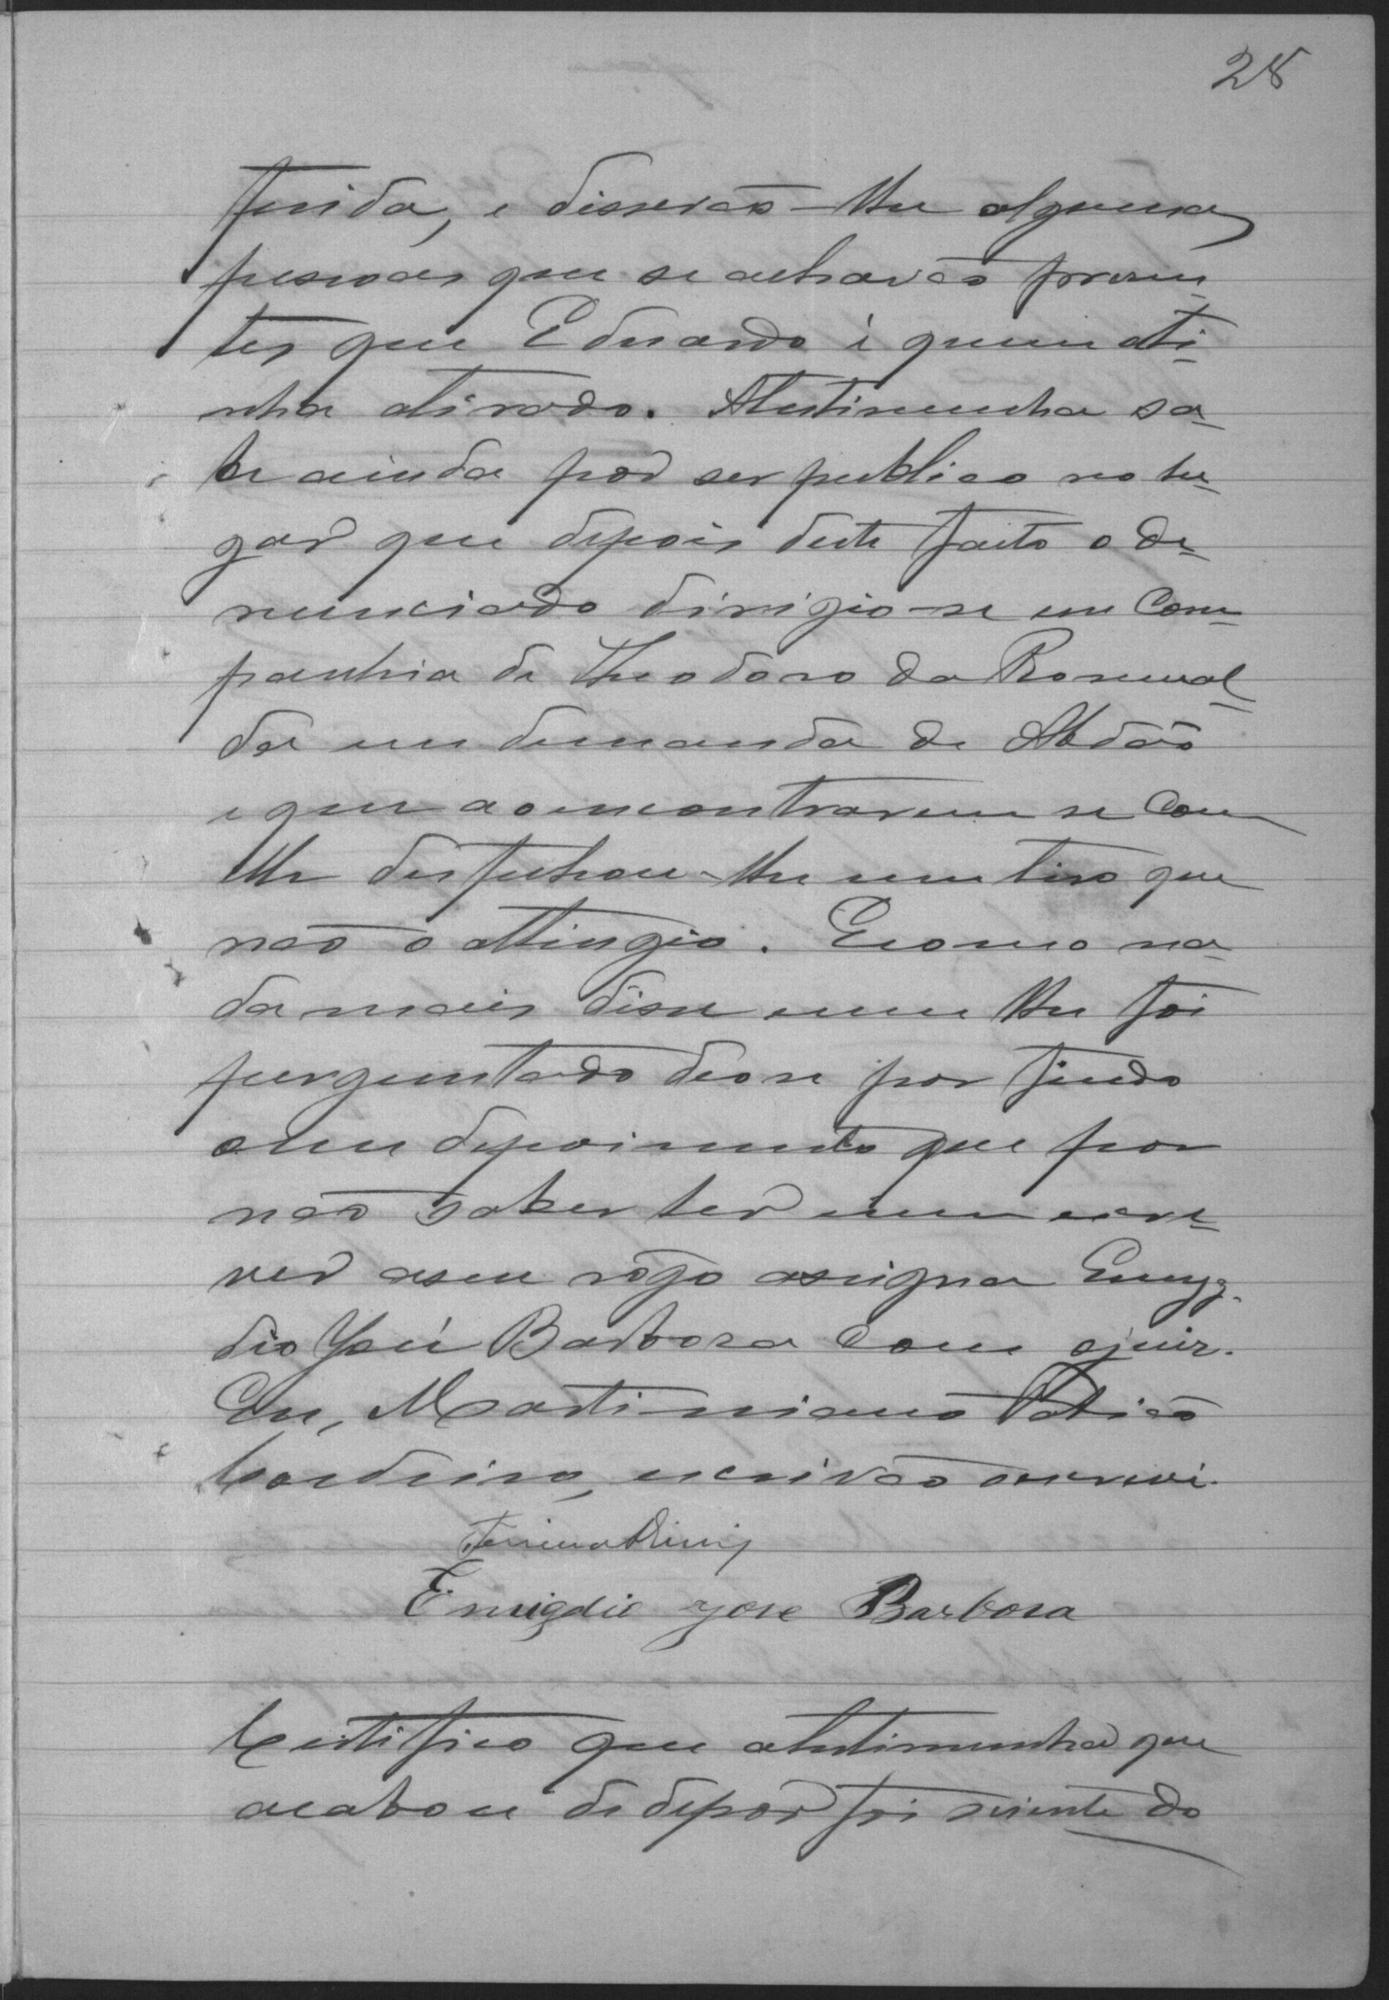 28
ferida, e disserão-lhe algumas
pessoas que se achavão presen-
tes que Eduardo é quem ati-
nha atirado. Atestimunha sa-
be ainda por ser publico no lu-
gar que depois deste facto o de-
nunciado dirigio-se em Com-
panhia de Theodoro da Rosenal-
da em demanda de Abdão
e que aoencontrarem se com
elle desfechou-lhe um tiro que
não o attingio. Ecomo na-
da mais disse nem lhe foi
perguntado deose por findo
oseu depoimento que por
não saber ler nem escre-
ver aseu rogo assigna Emyg-
dio José Barbosa Com ojuiz.
Eu, Martiniano
Cordeiro, escrivão escrevi.
Emigdio Jose Barbosa
Certifico que atestimunha que
acabou dedepor foi sciente do